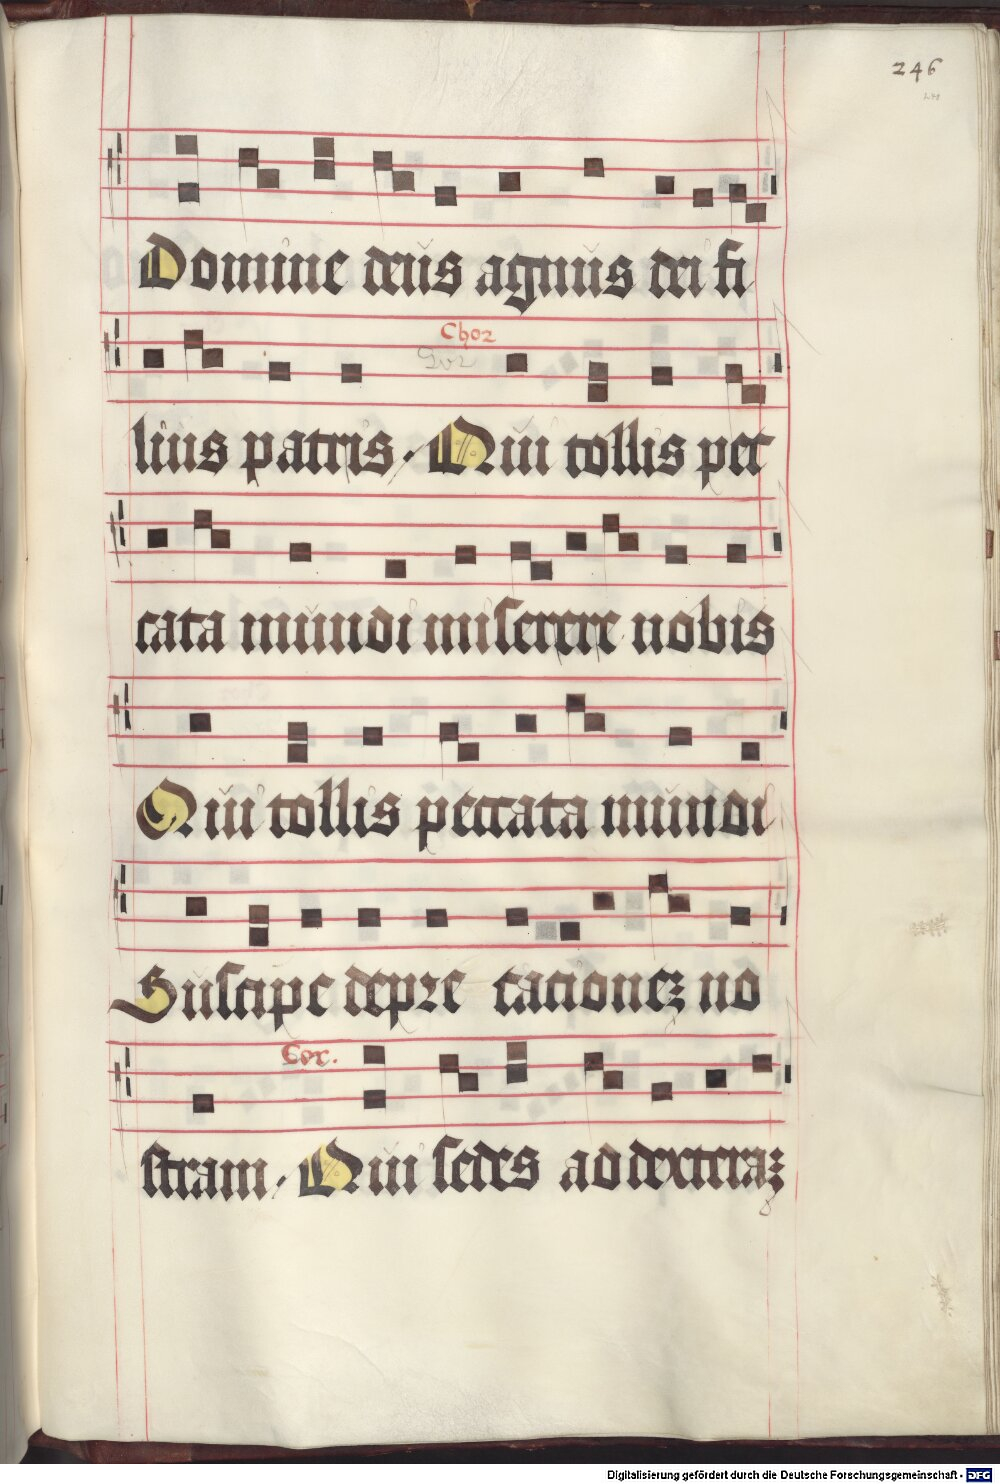 246
Domine deus agnus dei fi
Chor
lius patris. Qui tollis pec
cata mundi miserere nobis
Qui tollis peccata mundi
Suscipe depre cacionez no
Cor.
stram. Qui sedes ad dexteraz
Digitalisierung gefördert durch die Deutsche Forschungsgemeinschaft - DFG